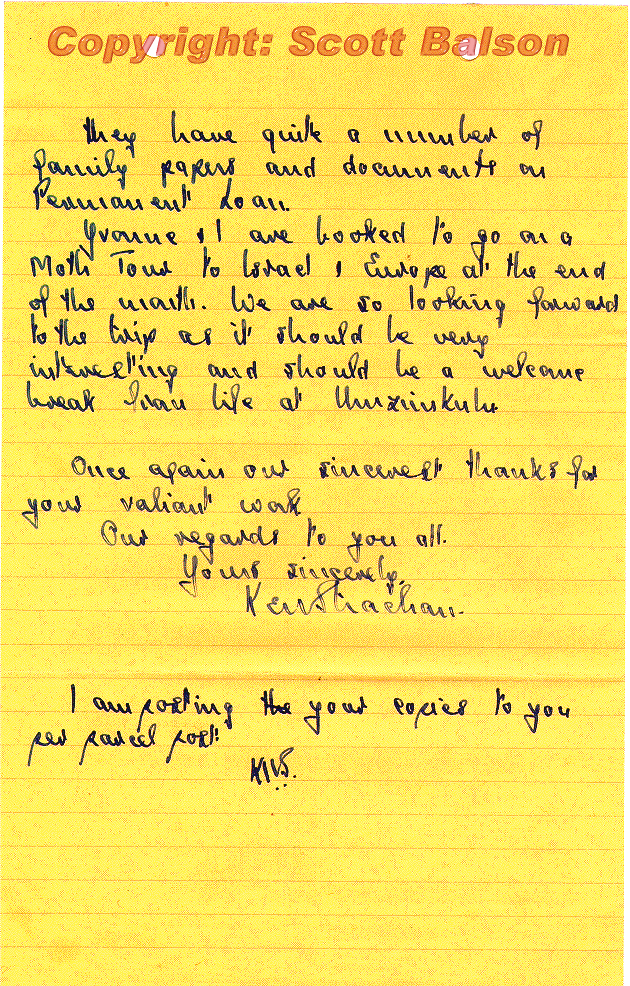 Copyright: Scott Balson
They have quite a number of
family papers and documents on
Permanent Loan.
Yvonne & I are booked to go on a
Moth Tour to Israel & Europe at the end
of the month. We are so looking forward
to the trip as it should be very
interesting and should be a welcome
break from life at Umzimkulu
Once again our sincerest thanks for
your valiant work
Our regards to you all.
Yours sincerely,
Ken Strachan.
I am posting the your copies to you
per parcel post.